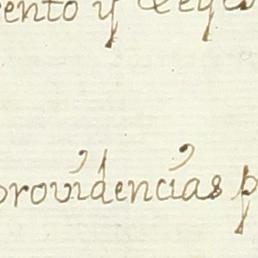 ento y
providencias p